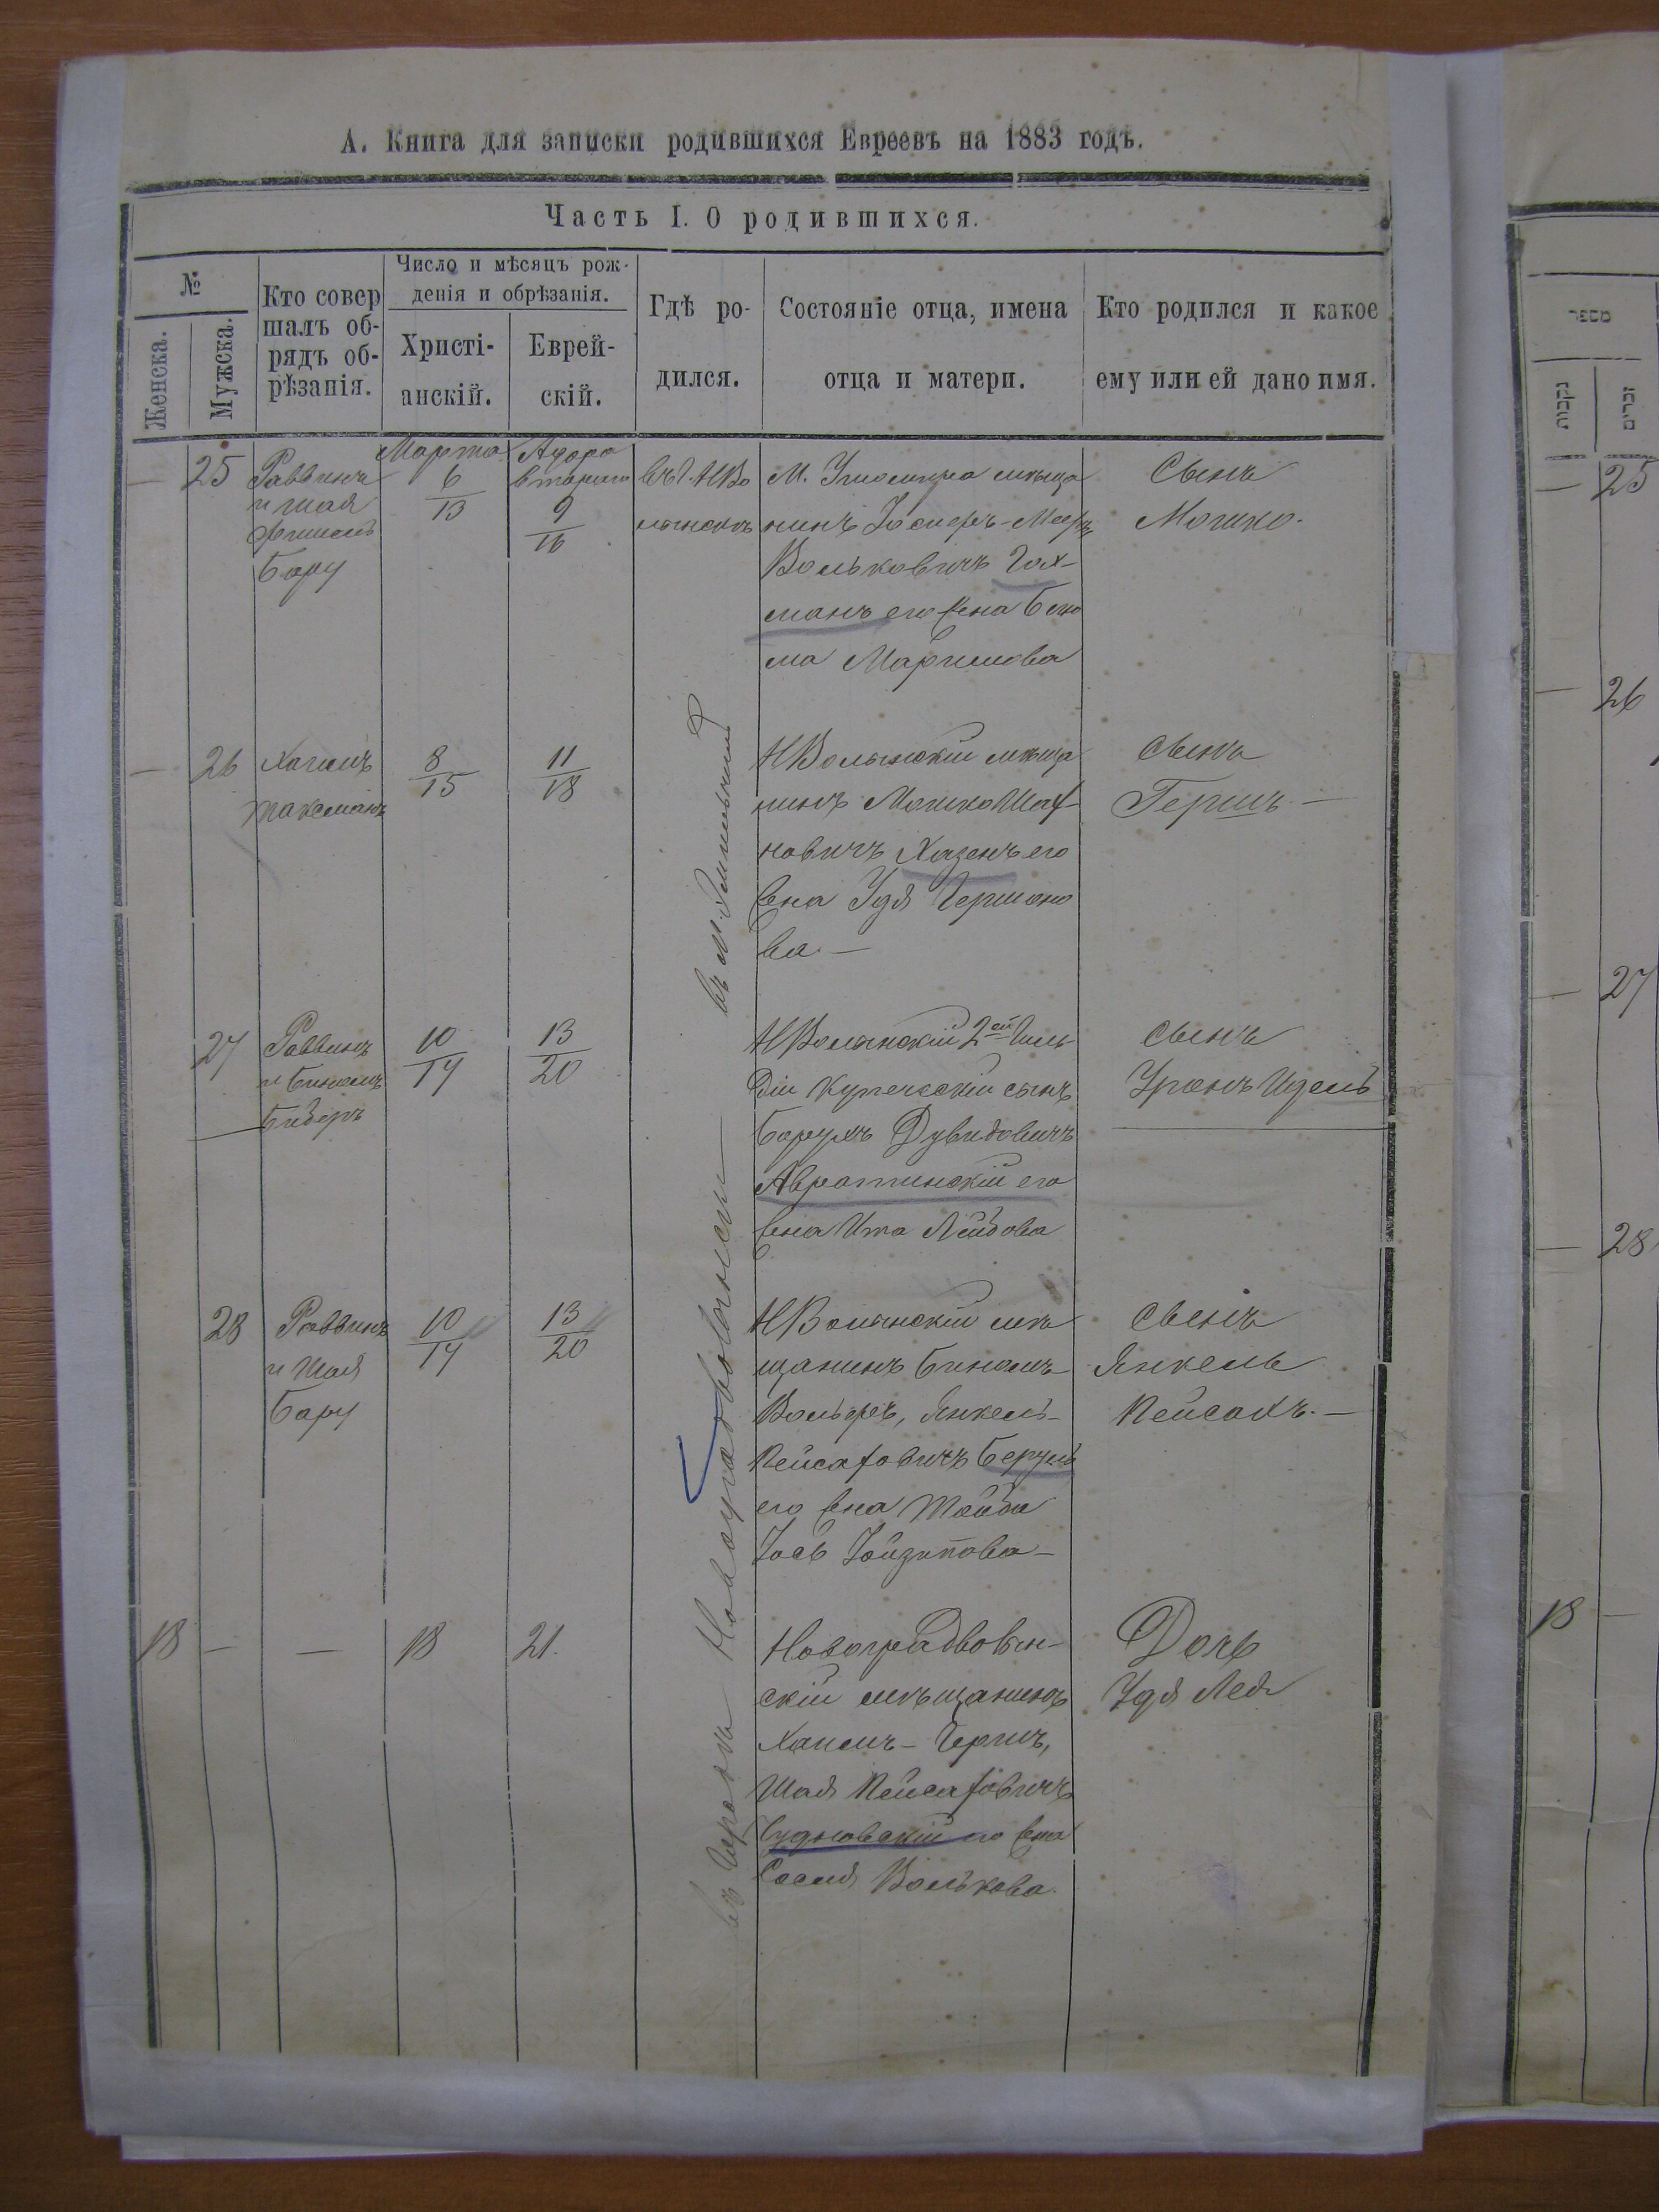 А. Книга для записки родившихся Евреевъ на 1883 годъ.
Часть I. О родившихся.
№
Женска.
Мужска.
Кто совер
шалъ об-
рядъ об-
рѣзанія.
Число и мѣсяцъ рож-
денія и обрѣзанія.
Христі-
анскій.
Еврей-
скій.
Гдѣ ро-
дился.
Состояніе отца, имена
отца и матери.
Кто родился и какое
ему или ей дано имя.
—
25
Раввинъ
и Шая
Бару
Марта
6
13
Адара
втораго
9
16
въ Г. НВо
лынскѣ
М. мѣща
нинъ Іосифъ-Мееръ
Вольковичъ Гох-
манъ его жена
ма
Сынъ
Мошко.
—
26
Хаимъ
Таксманъ
8
15
11
18
НВолынскій мѣща
нинъ Мошко Шах-
новичъ Хазенъ его
жена Удя Гершоно
ва. —
Сынъ
Гершъ. —
27
Раввинъ
и Бинемъ
Биберъ
10
17
13
20
НВолынскій 2ой Гиль-
діи Купеческій сынъ
Борухъ Дувидовичъ
Авратинскій его
жена Ита Лейбова
Сынъ
Уронъ Идель
28
Раввинъ
и Шая
Бару
10
17
13
20
НВолынскій мѣ
щанинъ Бинемъ
Вольфъ, Янкель-
Пейсаховичъ
его жена Тойба
Сынъ
Янкель
Пейсахъ. —
18
—
—
18
21.
въ Городѣ Новоградволынскѣ —
въ М.
Новоградволын-
скій мѣщанинъ
Хаимъ - Гершъ,
Шая Пейсаховичъ
Чудновскій его жена
Сосия Волькова.
Дочь
Удя Лея
מספר
נקבות
זכרים
— 25
— 26
— 27
— 28
18 —